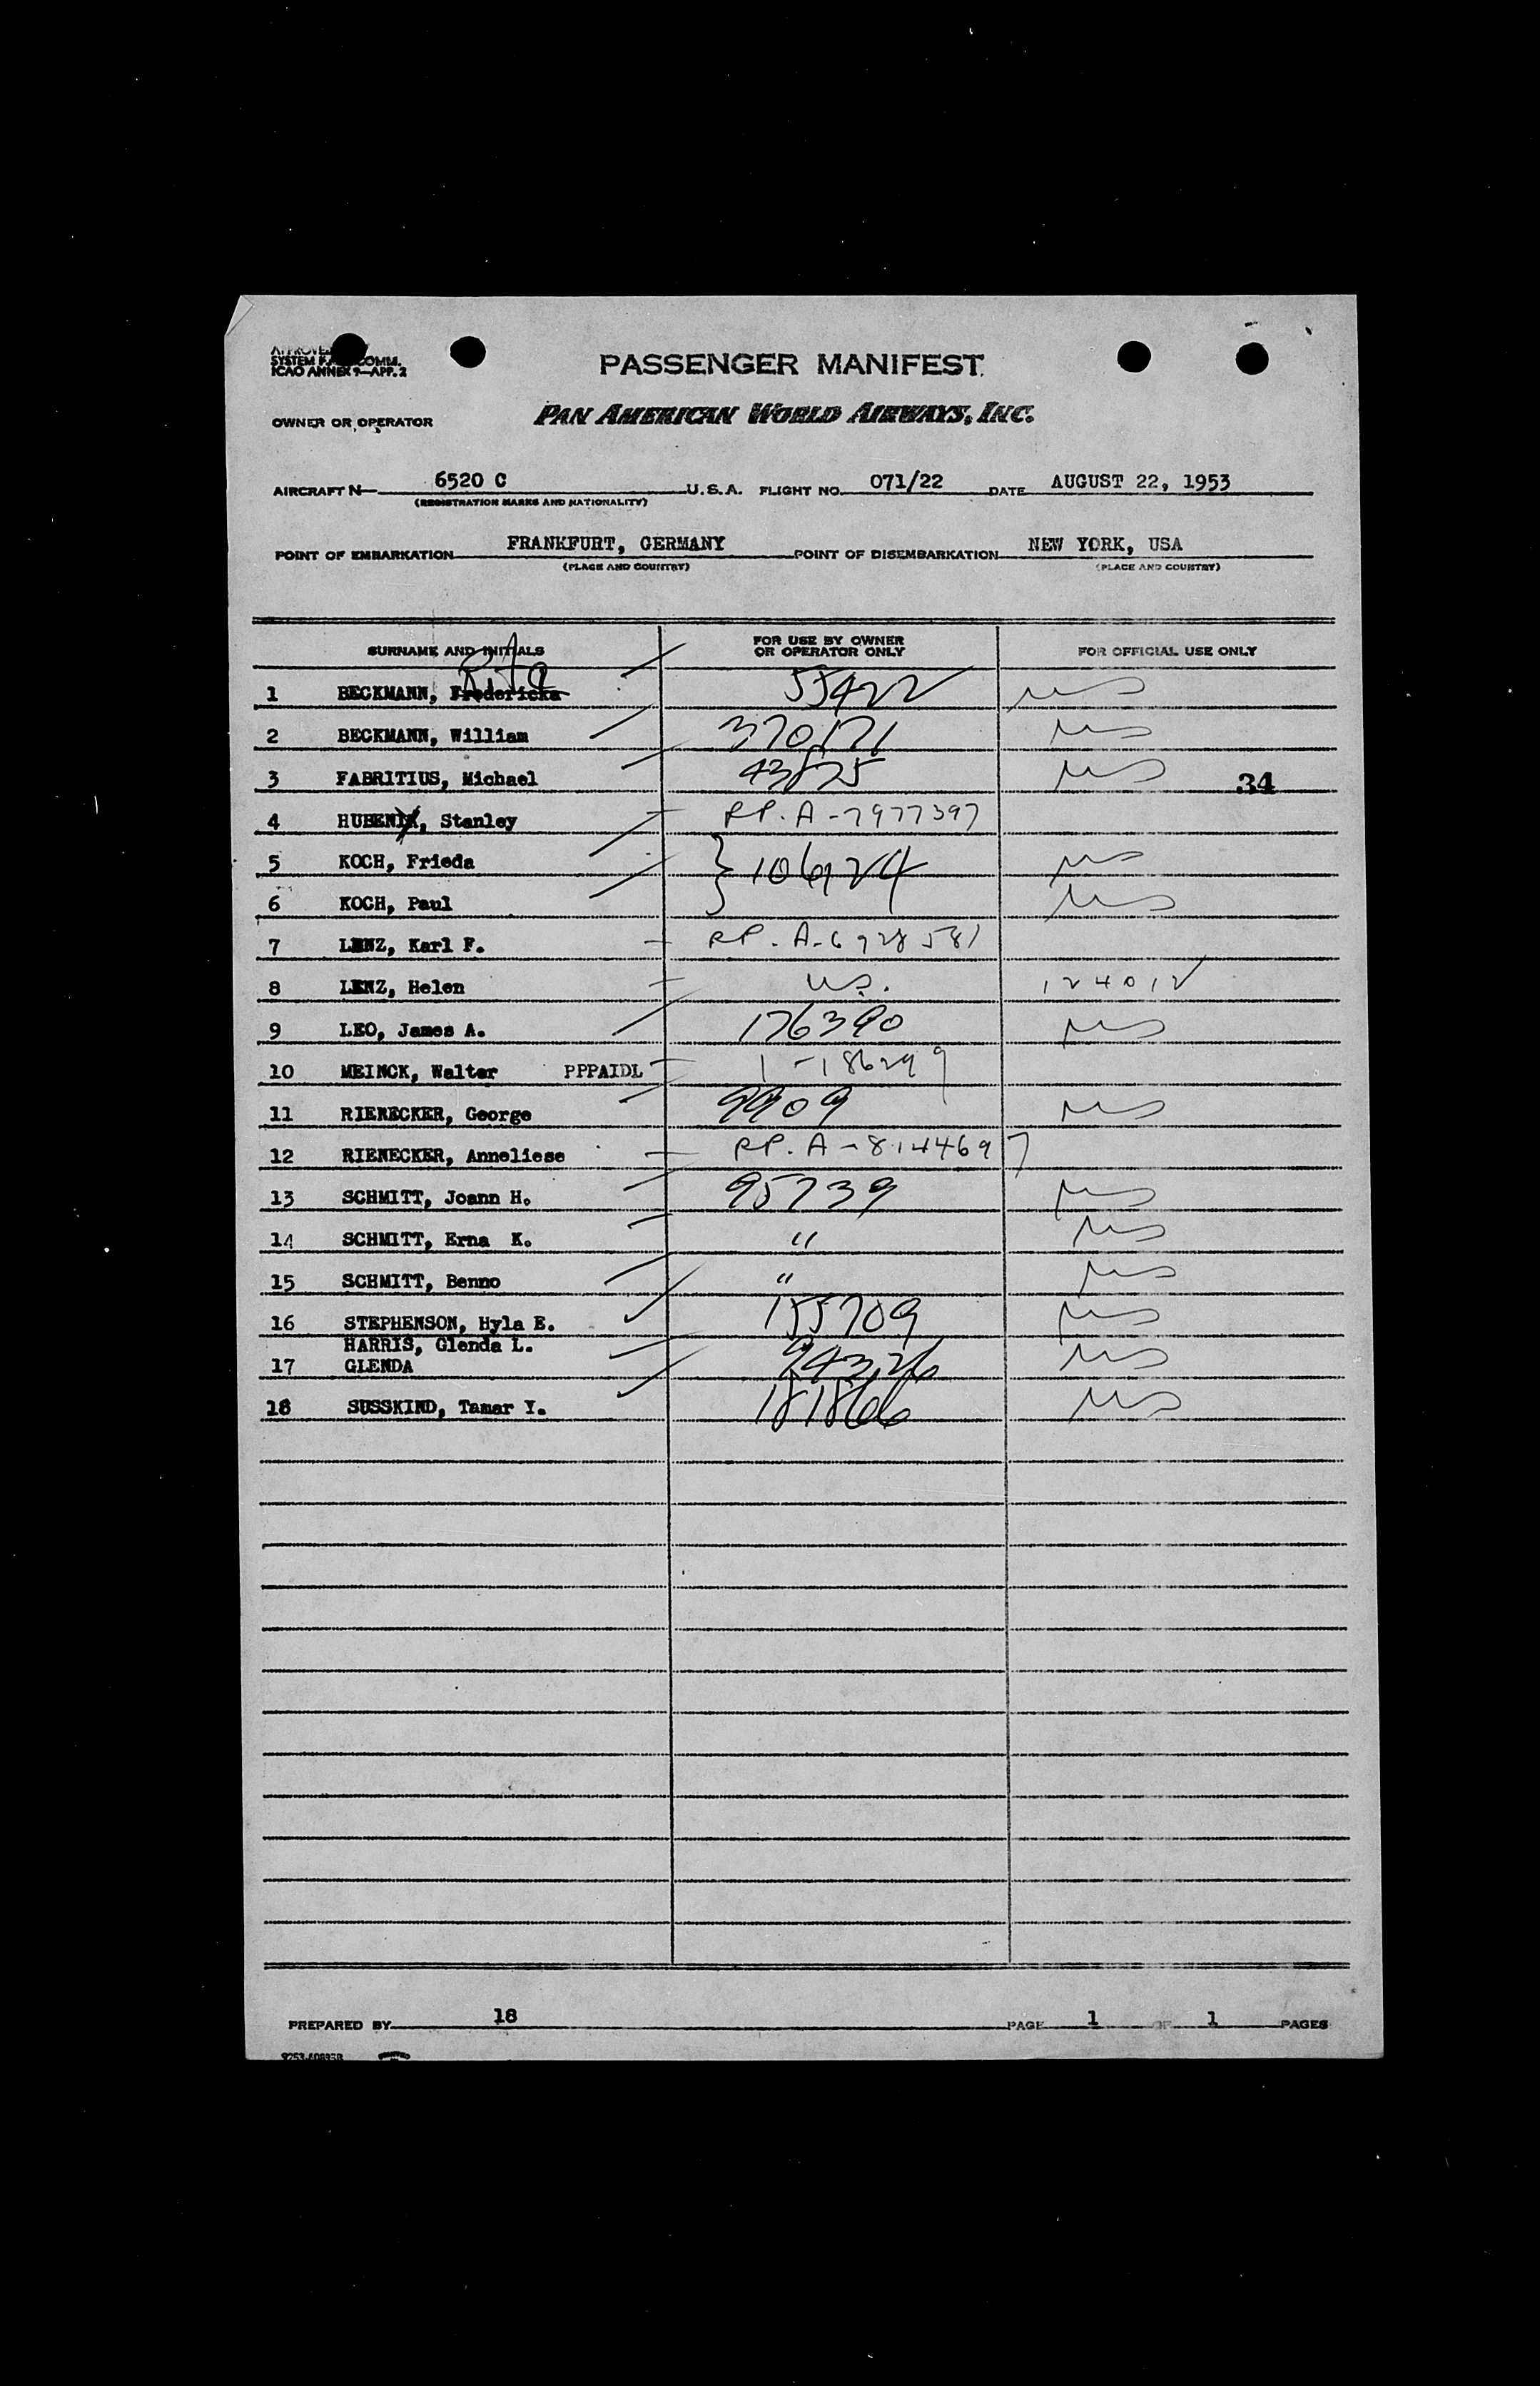 SYSTEM COMM.
ICAO ANNEX 9—APP. 2
PASSENGER MANIFEST
OWNER OR OPERATOR PAN AMERICAN WORLD AIRWAYS, INC.
AIRCRAFT N 6520 C U.S.A. FLIGHT NO. 071/22 DATE AUGUST 22, 1953
(REGISTRATION MARKS AND NATIONALITY)
POINT OF EMBARKATION FRANKFURT, GERMANY POINT OF DISEMBARKATION NEW YORK, USA
(PLACE AND COUNTRY) (PLACE AND COUNTRY)
SURNAME AND INITIALS FOR USE BY OWNER OR OPERATOR ONLY FOR OFFICIAL USE ONLY
Rita
1 BECKMANN, Fredericka 55422 US
2 BECKMANN, William 370171 US
3 FABRITIUS, Michael 43875 US 34
4 HUBENIK, Stanley RP. A-7977397
5 KOCH, Frieda } 106924 US
6 KOCH, Paul US
7 LENZ, Karl F. RP. A-6928581
8 LENZ, Helen US. 124012
9 LEO, James A. 176390 US
10 MEINCK, Walter PPPAIDL 1-186299
11 RIENECKER, George 9909 US
12 RIENECKER, Anneliese RP. A-8144697
13 SCHMITT, Joann H. 95739 US
14 SCHMITT, Erna K. " US
15 SCHMITT, Benno " US
16 STEPHENSON, Hyla E. 155709 US
HARRIS, Glenda L.
17 GLENDA 94326 US
18 SUSSKIND, Tamar Y. 181866 US
PREPARED BY 18 PAGE 1 OF 1 PAGES